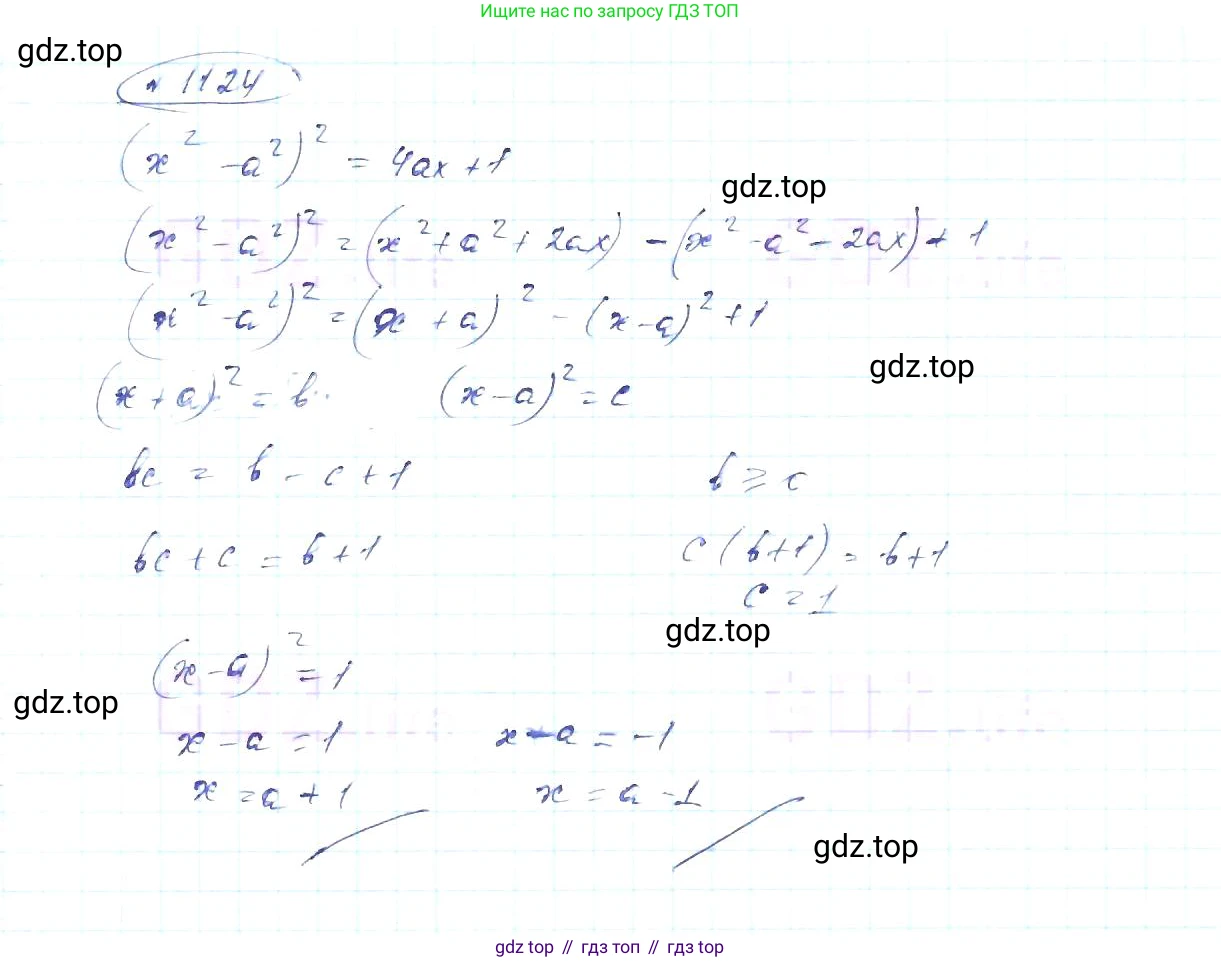 Ищите нас по запросу ГДЗ ТОП
gdz.top
№ 1124
(x² - a²)² = 4ax + 1
gdz.top
(x² - a²)² = (x² + a² + 2ax) - (x² - a² - 2ax) + 1
(x² - a²)² = (x + a)² - (x - a)² + 1
gdz.top
(x + a)² = b. (x - a)² = c
bc = b - c + 1 b ≥ c
bc + c = b + 1 c (b+1) = b+1
c = 1
gdz.top
(x - a)² = 1
gdz.top
x - a = 1 x - a = -1
x = a + 1 x = a - 1
gdz.top
gdz top // гдз топ // гдз top